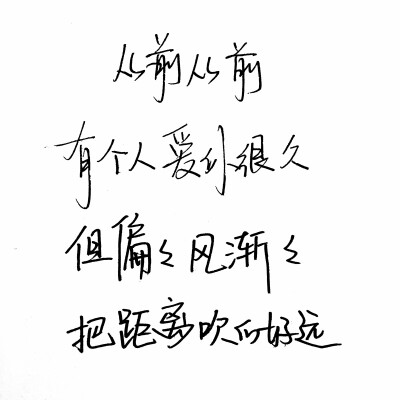 从前从前
有个人爱你很久
但偏々风渐々
把距离吹得好远